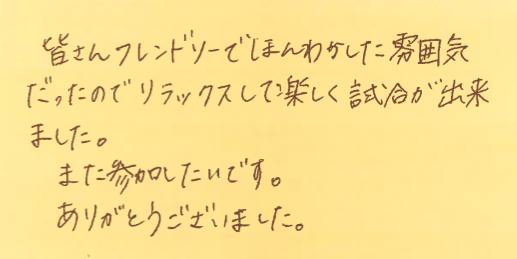 皆さんフレンドリーでほんわかした雰囲気
だったのでリラックスして楽しく試合が出来
ました。
また参加したいです。
ありがとうございました。